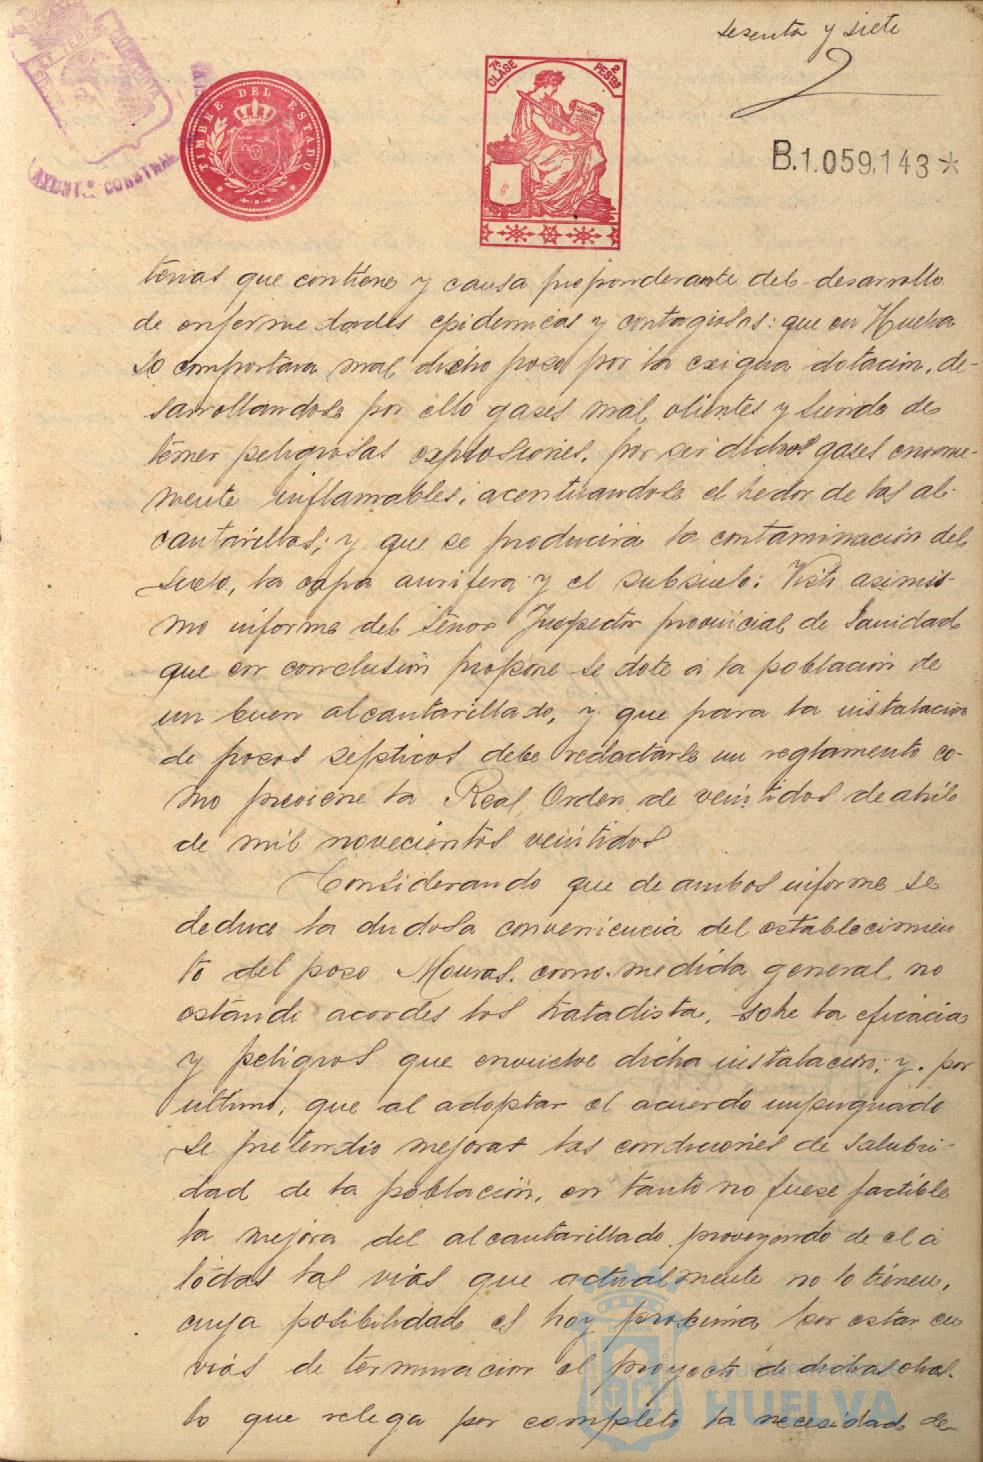 sesenta y siete
TIMBRE DEL ESTADO
7ª CLASE 2 PESTAS
B.1.059,143*
AYUNTº CONSTNAL
terias que contiene y causa preponderante del desarrollo
de enfermedades epidemicas y contagiosas: que en Huelva
se comportara mal dicho pozo por la exigua dotacion, de-
sarrollandose por ello gases mal olientes y siendo de
temer peligrosas explosiones, por ser dichos gases enorme-
mente inflamables, acentuandose el hedor de las al-
cantarillas; y que se producirá la contaminación del
suelo, la capa aurifera y el subsuelo: Visto asimis-
mo informe del Señor Inspector provincial de Sanidad
que en conclusión propone se dote á la población de
un buen alcantarillado, y que para la instalacion
de pozos septicos debe redactarse un reglamento co-
mo previene la Real Orden de veintidos de abril
de mil novecientos veintidos
Considerando que de ambos informe se
deduce la dudosa conveniencia del establecimien
to del pozo Mouras, como medida general no
estando acordes los tratadista, sobre la eficacia
y peligros que envuelve dicha instalacion; y. por
ultimo, que al adoptar el acuerdo impugnado
se pretendio mejorar las condiciones de salubri-
dad de la población, en tanto no fuese factible
la mejora del alcantarillado proveyendo de el á
todas las vias que actualmente no lo tienen,
cuya posibilidad es hoy proxima por estar en
vias de terminacion el proyecto de dichas obras.
lo que relega por completo la necesidad de
HUELVA